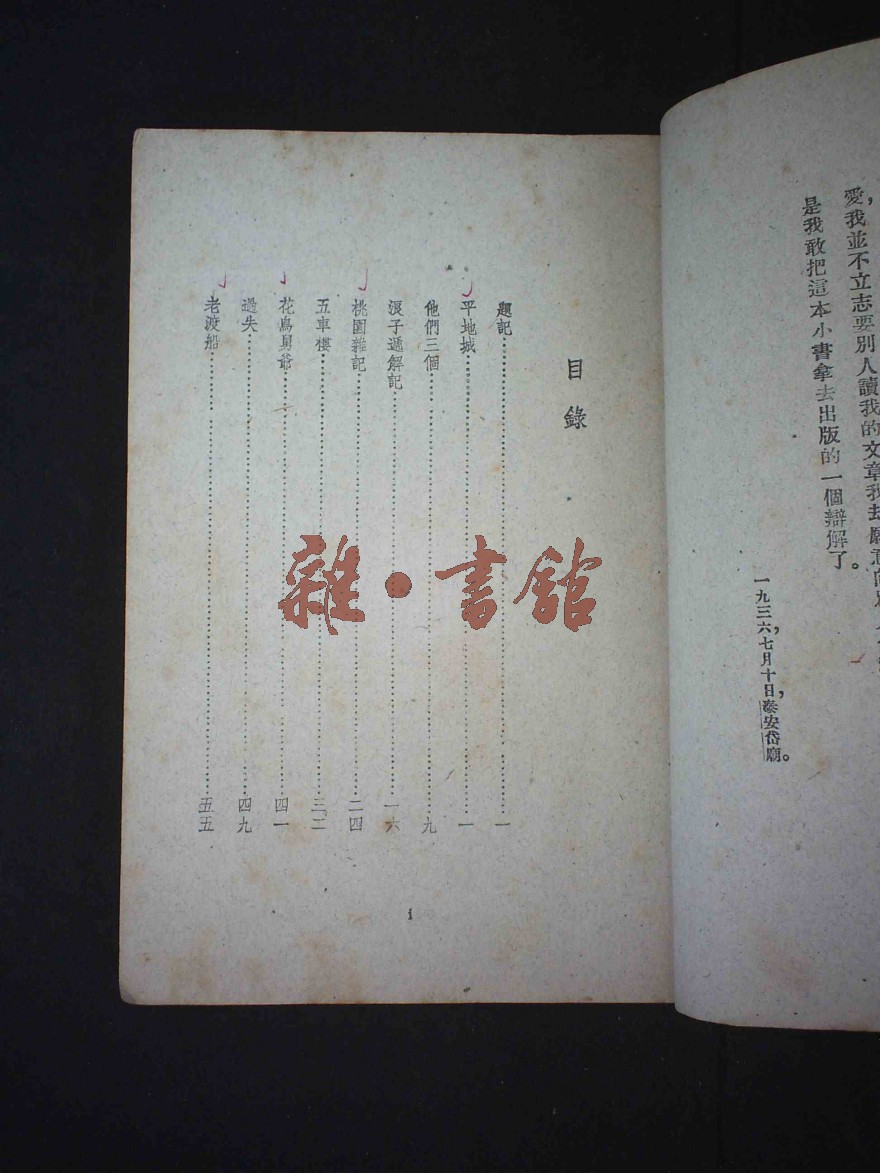 愛，我並不立志要別人讀我的文章我却願意
是我敢把這本小書拿去出版的一個辯解了。
一九三六，七月十日，泰安岱廟。
目錄
題記 一
平地城 一
他們三個 九
浪子遞解記 一六
桃園雜記 二四
五車樓 三二
花鳥舅爺 四一
過失 四九
老渡船 五五
i
雜·書館